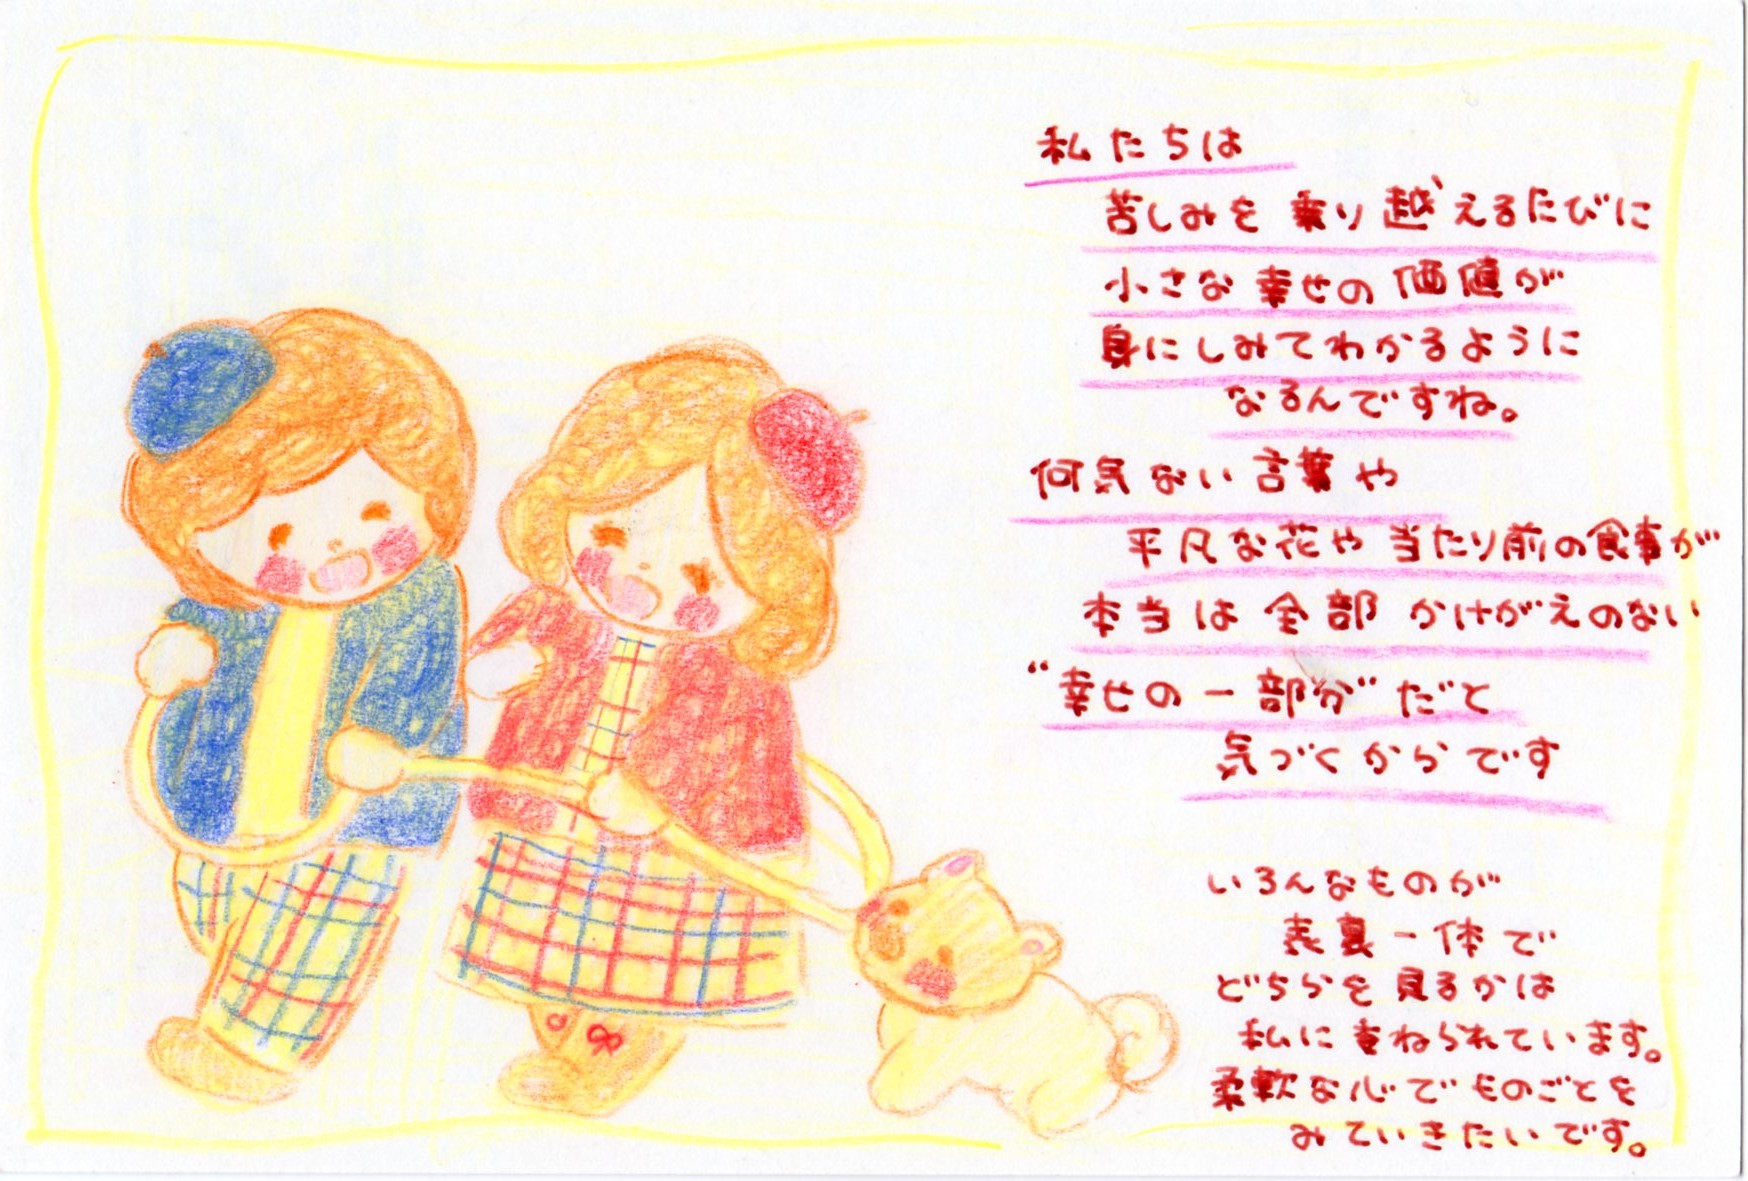 私たちは
苦しみを乗り越えるたびに
小さな幸せの価値が
身にしみてわかるように
なるんですね。
何気ない言葉や
平凡な花や当たり前の食事が
本当は全部かけがえのない
“幸せの一部が”だと
気づくからです
いろんなものが
表裏一体で
どちらを見るかは
私に重ねられています。
柔軟な心でものごとを
みていきたいです。